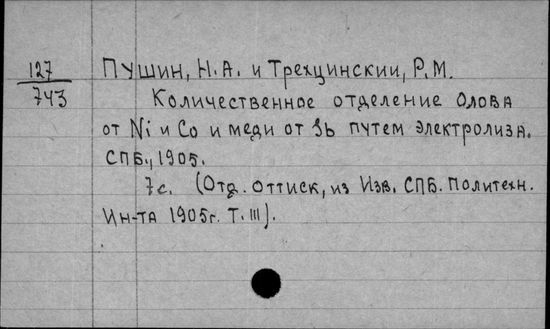 127
743
Пушин, Н.А. и Трехцинскии, Р.М.
Количественное отделение олова
от Ni и Co и меди от Sb путем электролиза.
СПБ., 1905.
7с. (Отд. оттиск, из Изв. СПБ. Политехн.
Ин-та 1905г. Т. III).